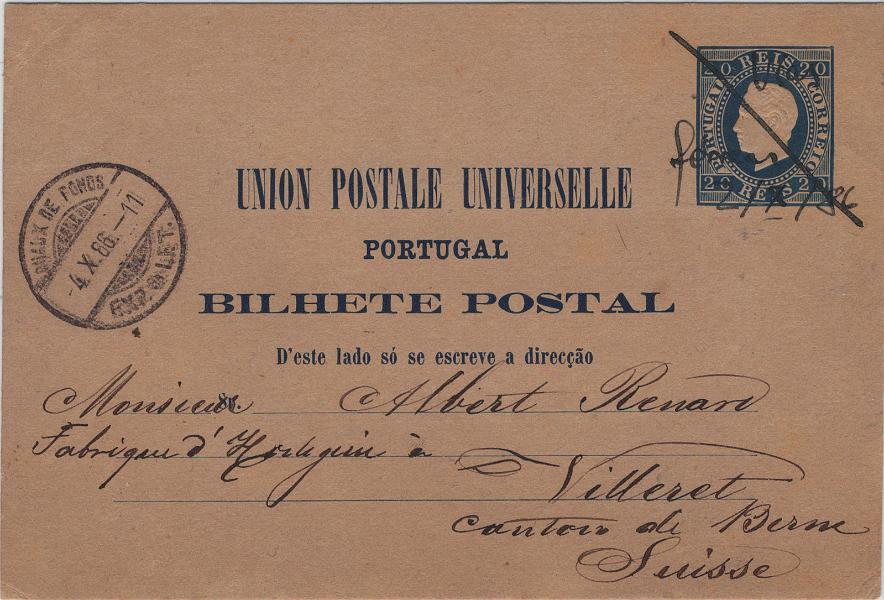 20 REIS 20
PORTUGAL
CORREIO
20 REIS 20
CHAUX DE FONDS
-4.X.86.-11
EXP. LET.
UNION POSTALE UNIVERSELLE
PORTUGAL
BILHETE POSTAL
D'este lado só se escreve a direcção
Monsieur Albert Renard
Fabrique d'Horlogerie à
Villeret
Canton de Berne
Suisse